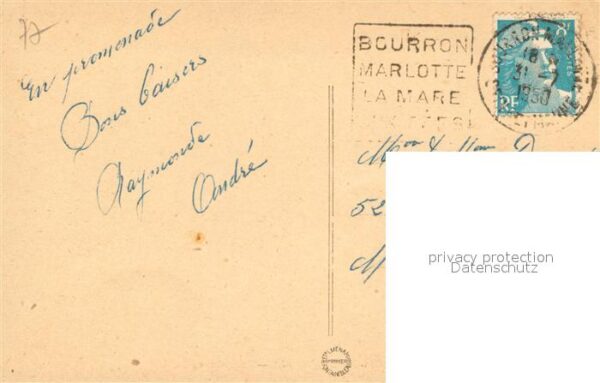 77
En promenade
Bons baisers
Raymonde
André
BOURRON
MARLOTTE
LA MARE
AUX FÉES
18 H
31 -7
1950
8F
POSTES
RF
Mon & Mme
52
M
privacy protection
Datenschutz